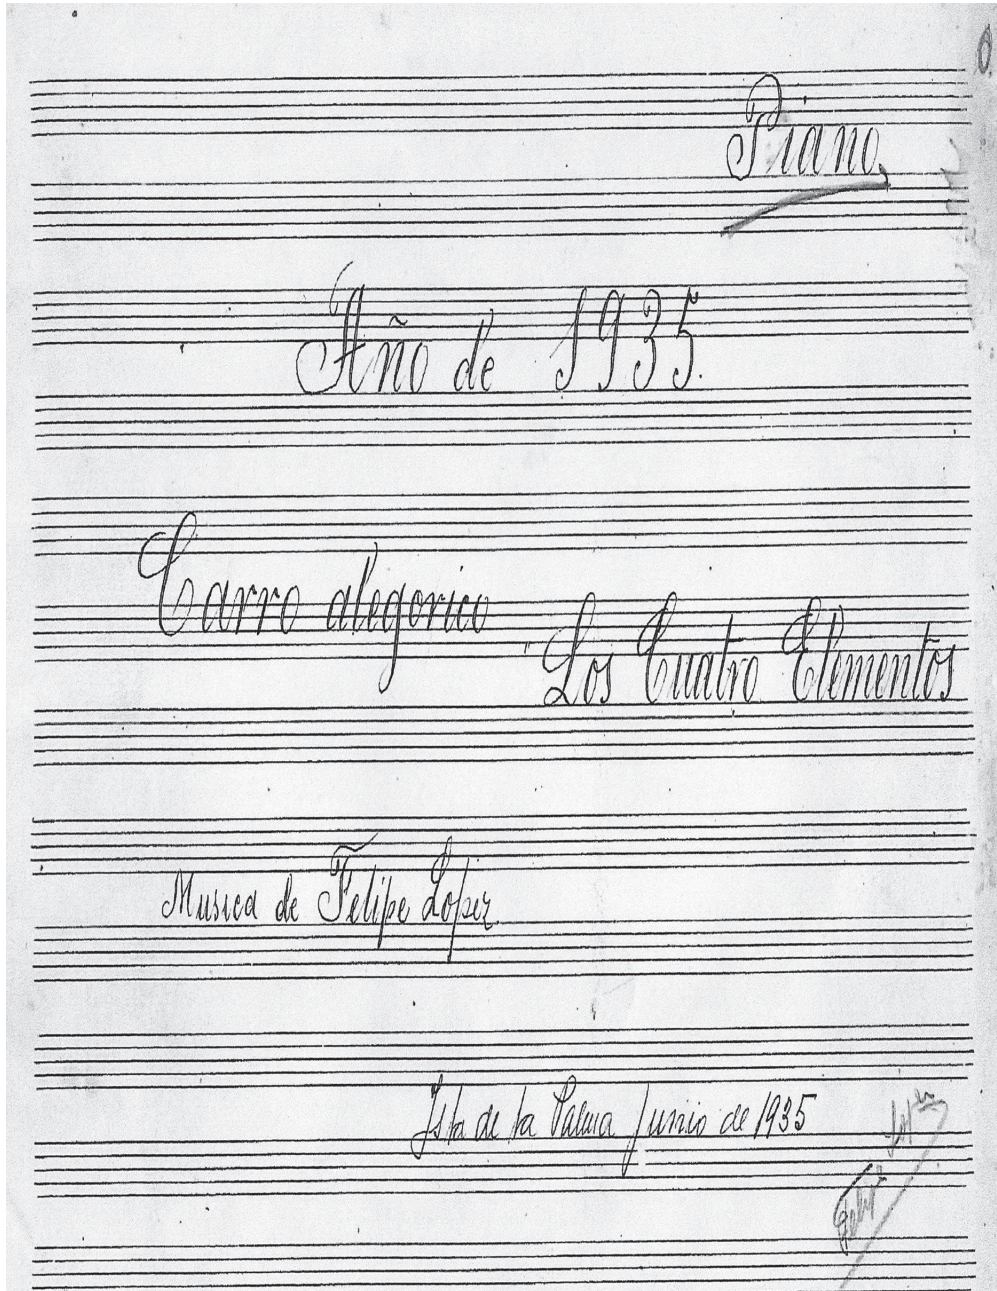 Piano
Año de 1935.
Carro alegorico
"Los Cuatro Elementos
Musica de Felipe Lopez
Isla de la Palma Junio de 1935
Felipe Lopez